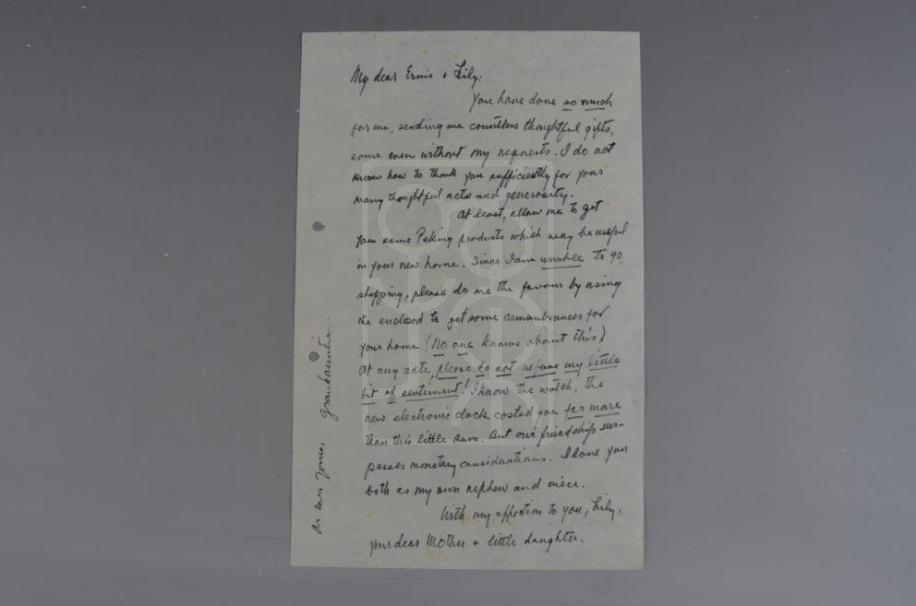 My dear Ernie + Lily:
You have done so much
for me, sending me countless thoughtful gifts,
some even without my requests. I do not
know how to thank you sufficiently for your
many thoughtful acts and generosity.
At least, allow me to get
you some Peking products which may be useful
in your new home. Since I am unable to go
shopping, please do me the favour by using
the enclosed to get some remembrances for
your home (No one knows about this)
At any rate, please do not refuse my little
bit of sentiment! I know the watch, the
new electronic clock costed you far more
then this little sum. But our friendship sur-
passes monetary considerations. I love you
both as my own nephew and niece.
With my affection to you, Lily,
your dear Mother + little daughter.
As ever yours, Grandauntie.